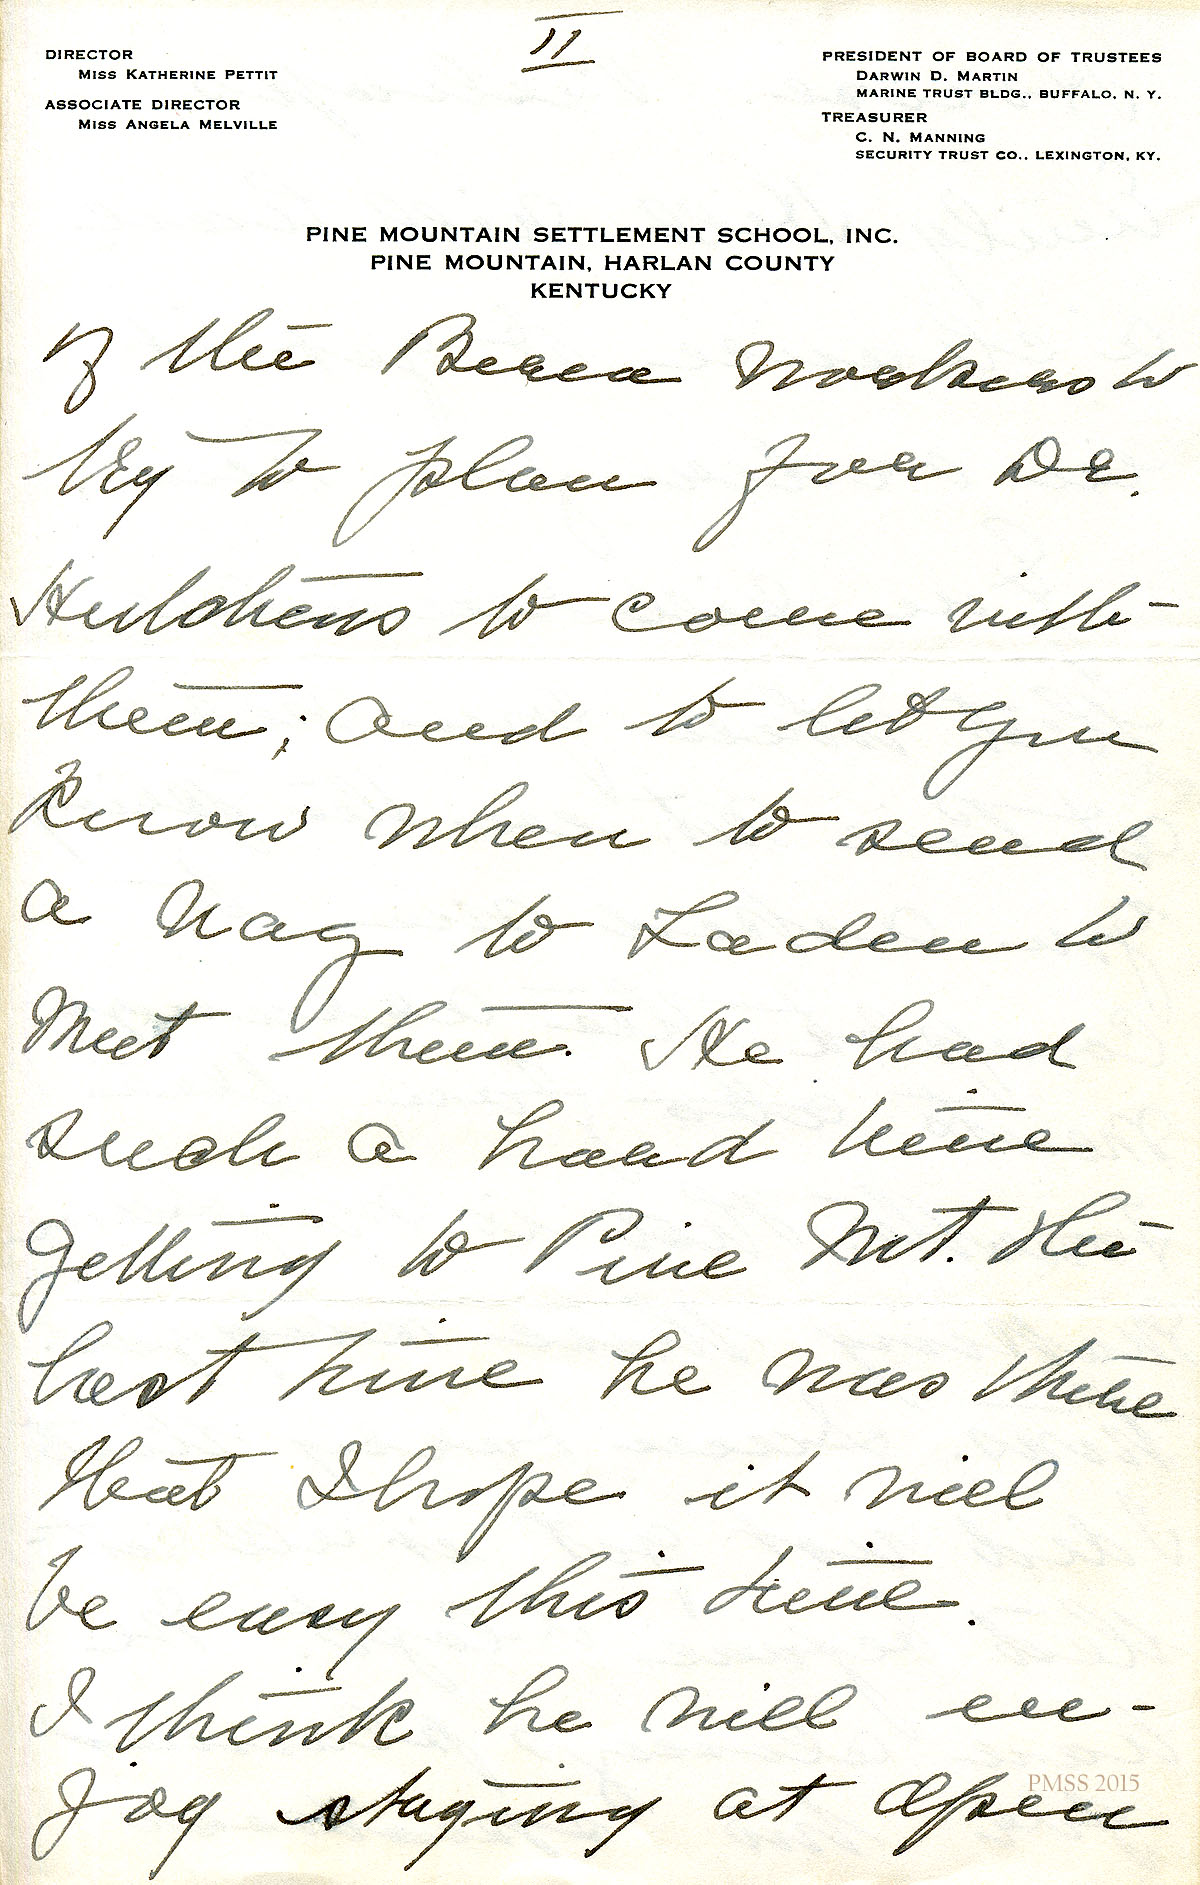 II
DIRECTOR
MISS KATHERINE PETTIT
ASSOCIATE DIRECTOR
MISS ANGELA MELVILLE
PRESIDENT OF BOARD OF TRUSTEES
DARWIN D. MARTIN
MARINE TRUST BLDG., BUFFALO, N. Y.
TREASURER
C. N. MANNING
SECURITY TRUST CO., LEXINGTON, KY.
PINE MOUNTAIN SETTLEMENT SCHOOL, INC.
PINE MOUNTAIN, HARLAN COUNTY
KENTUCKY
of the Berea workers to
try to plan for Dr.
Hutchens to come with
them; and to let you
know when to send
a nag to Laden to
meet them. He had
such a hard time
getting to Pine Mt. the
last time he was there
that I hope it will
be easy this time.
I think he will en-
joy staying at Open
PMSS 2015